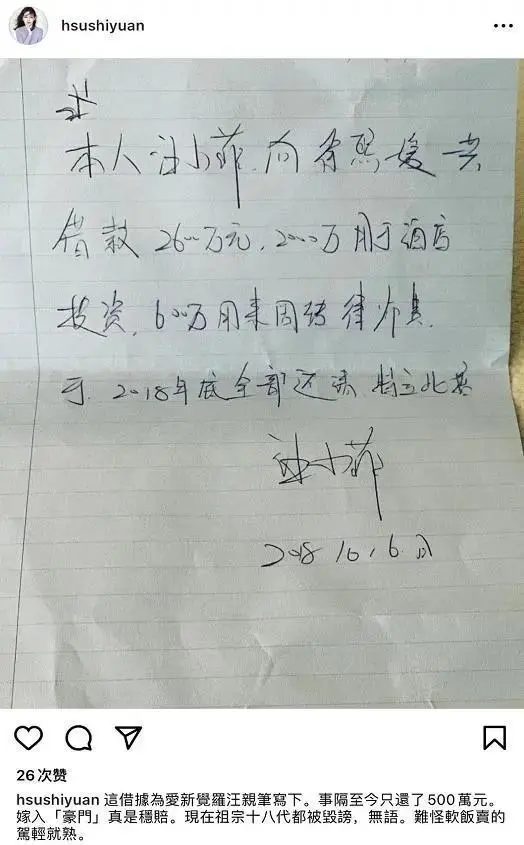 hsushiyuan
本人汪小菲,向徐熙媛共
借款2600万元,2000万用于酒店
投资,600万用来周转律师费.
于2018年底全部还清,特立此据
汪小菲
2018 10, 6.
26次赞
hsushiyuan 這借據為愛新覺羅汪親筆寫下。事隔至今只還了500萬元。
嫁入「豪門」真是穩賠。現在祖宗十八代都被毀謗，無語。難怪軟飯賣的
駕輕就熟。